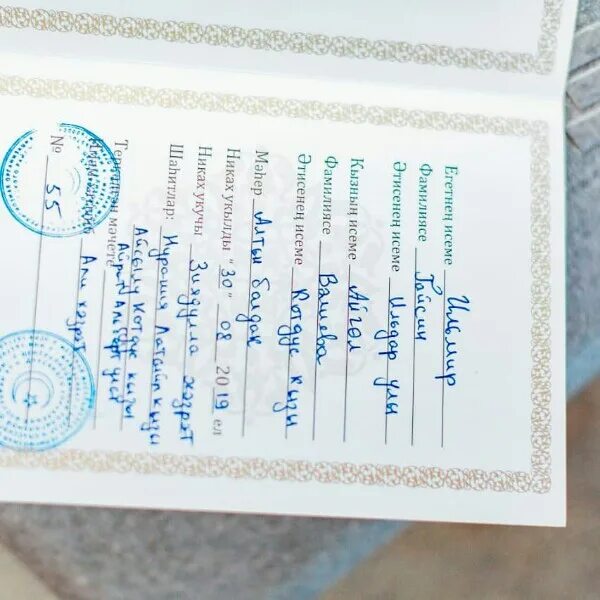 Егетнең исеме Ильмир
Фамилиясе Гайсин
Әтисенең исеме Ильдар улы
Кызның исеме Айгөл
Фамилиясе Вәлиева
Әтисенең исеме Котдус кызы
Мәһер Алтын балдак
Никах укылды "30" 08 2019 ел
Никах укучы Зиядулла хәзрәт
Шаһитлар: Нурания Латыйп кызы
Айсылу Котдус кызы
Альберт улы
Теркәлгән мәчете
Али хәзрәт
№ 55